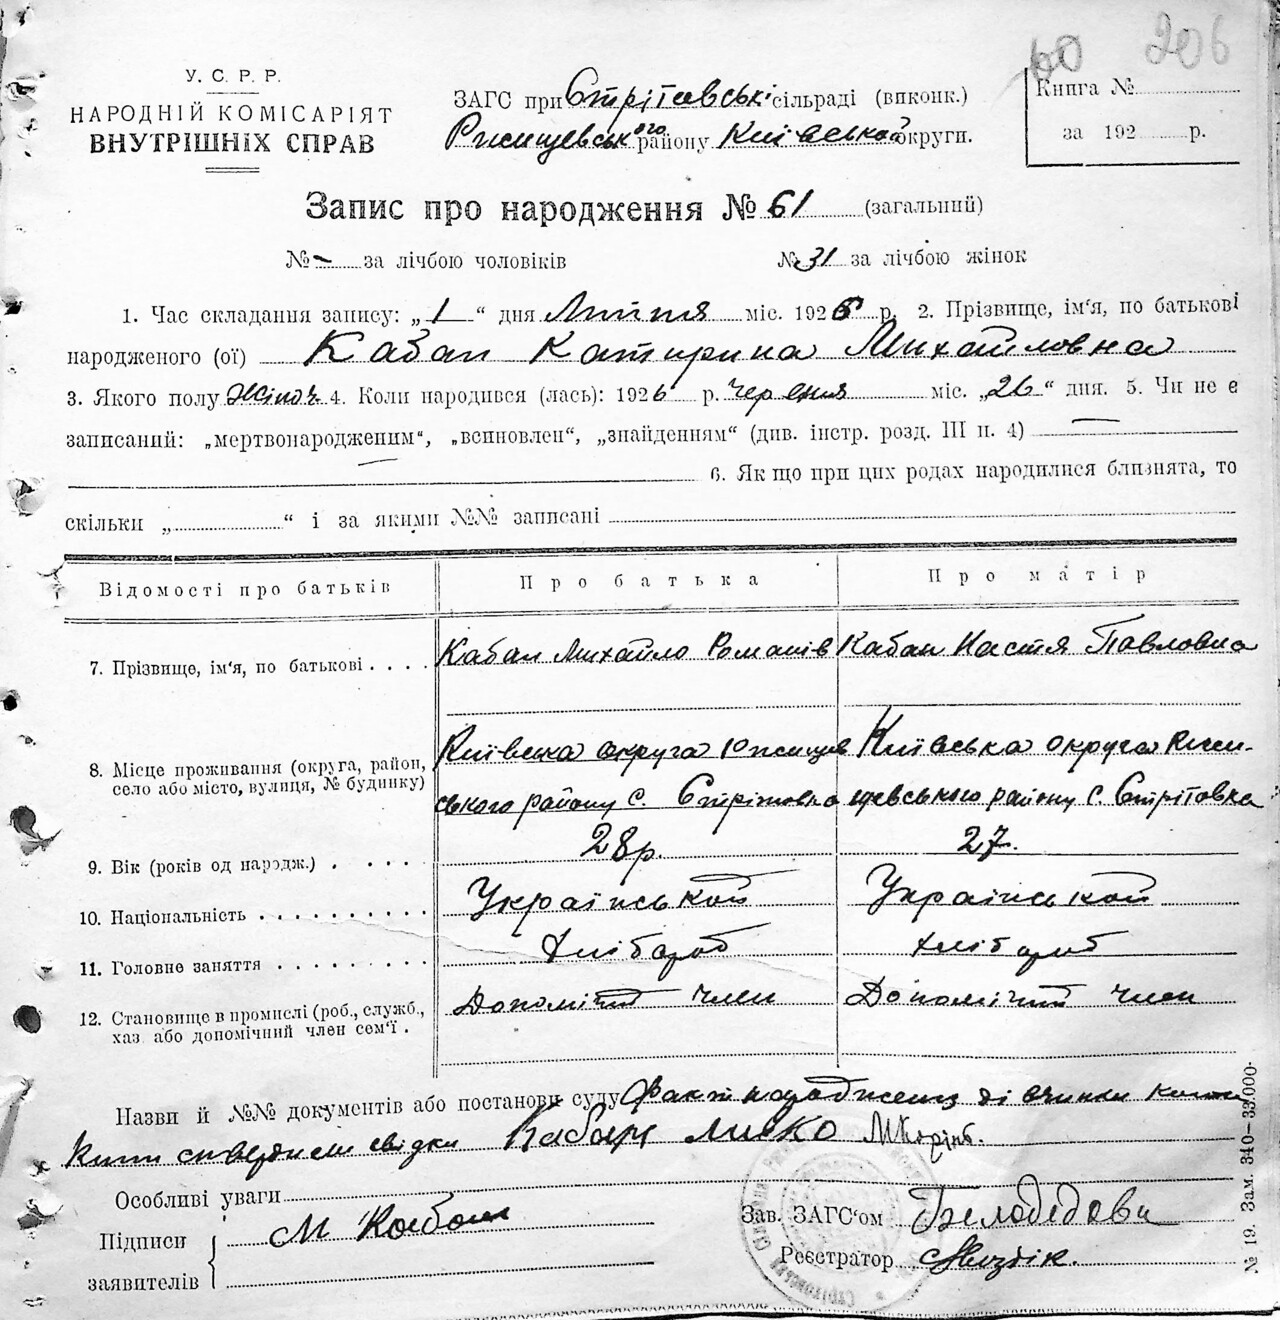 60 206
У. С. Р. Р.
НАРОДНІЙ КОМІСАРІЯТ
ВНУТРІШНІХ СПРАВ
ЗАГС при Стрітовські сільраді (виконк.)
Ржищевського району Київської округи.
Книга №
за 192 р.
Запис про народження № 61 (загальний)
№ - за лічбою чоловіків № 31 за лічбою жінок
1. Час складання запису: „1“ дня Липня міс. 1926 р. 2. Прізвище, ім‘я, по батькові
народженого (ої) Кабан Катирина Михайловна
3. Якого полу Жіноч 4. Коли народився (лась): 1926 р. Червня міс. „26“ дня. 5. Чи не є
записаний: „мертвонародженим“, „всиновлен“, „знайденням“ (див. інстр. розд. III п. 4) —
— 6. Як що при цих родах народилися близнята, то
скільки „ “ і за якими №№ записані
Відомості про батьків Про батька Про матір
7. Прізвище, ім‘я, по батькові . . . . Кабан Михайло Романів Кабан Настя Павловна
8. Місце проживання (округа, район, село або місто, вулиця, № будинку)
Київська округа Ржищев
ського району с. Стрітовка
Київська округа Ржи-
щевського району с. Стрітовка
9. Вік (років од народж.) . . . . . 28 р. 27.
10. Національність . . . . . . . . . . Українській Українській
11. Головне заняття . . . . . . . . . Хліборб Хліборб
12. Становище в промислі (роб., служб., хаз. або допомічний член сем‘ї .
Допомічний член Допомічний член
Назви й №№ документів або постанови суду Факт народження дівчинки
свідки Кабан
Особливі уваги
Підписи
заявителів
М Кабан
Зав. ЗАГС‘ом Белодідови
Реєстратор
№ 19. Зам. 340—33.000.